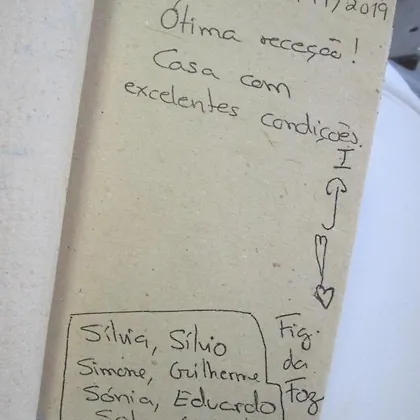 /2019
Ótima receção!
Casa com
excelentes condições.
Sílvia, Sílvio
Simone, Guilherme
Sónia, Eduardo
Fig.
da
Foz